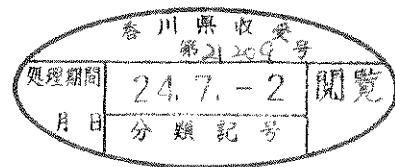 香川県収受
第21209号
処理期間
24.7.-2
閲覧
月 日
分類記号